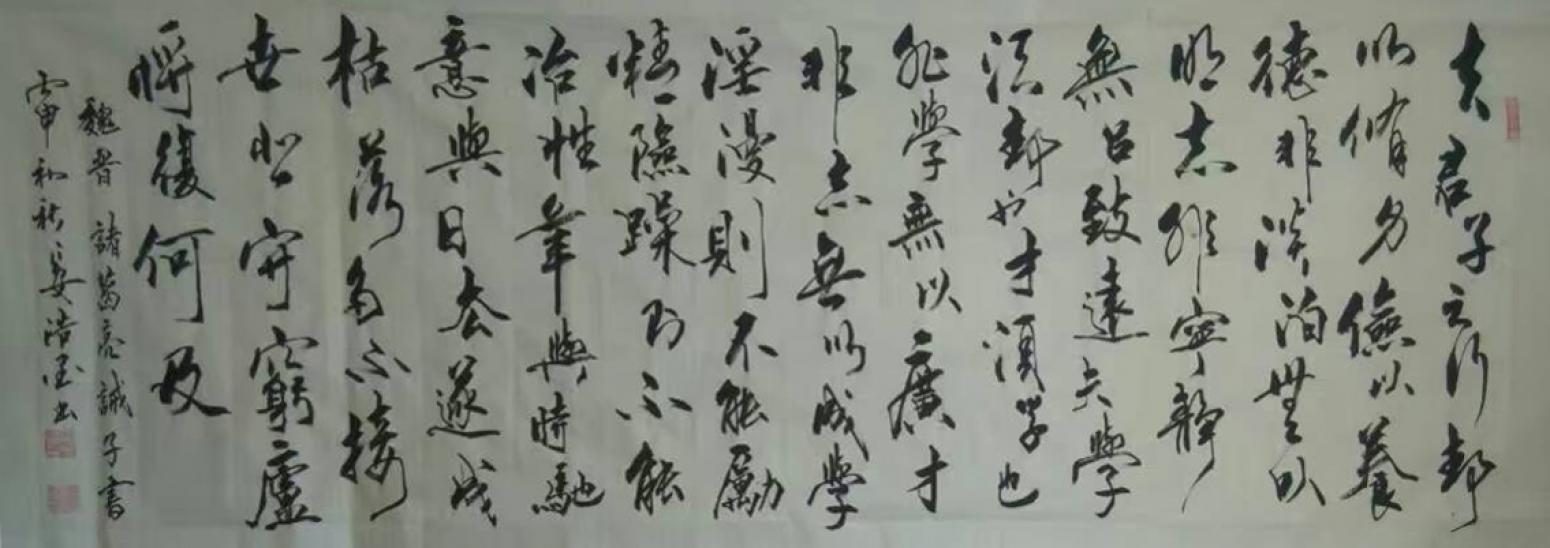 夫君子之行靜
以脩身儉以養
德非淡泊無以
明志非寧靜
無以致遠夫學
須靜也才須學也
非學無以廣才
非志無以成學
淫漫則不能勵
精險躁則不能
冶性年與時馳
意與日去遂成
枯落多不接
世悲守窮廬
將復何及
魏晉諸葛亮誡子書
丙申初秋姜浩墨书